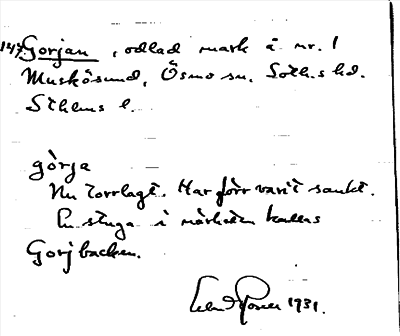 147. Gorjan, odlad mark å nr. 1
Muskösund, Ösmo sn. Soth.s hd.
Sthlms l.
gòrja
Nu torrlagt. Har förr varit sankt.
En stuga i närheten kallas
Gorjbacken.
1931.